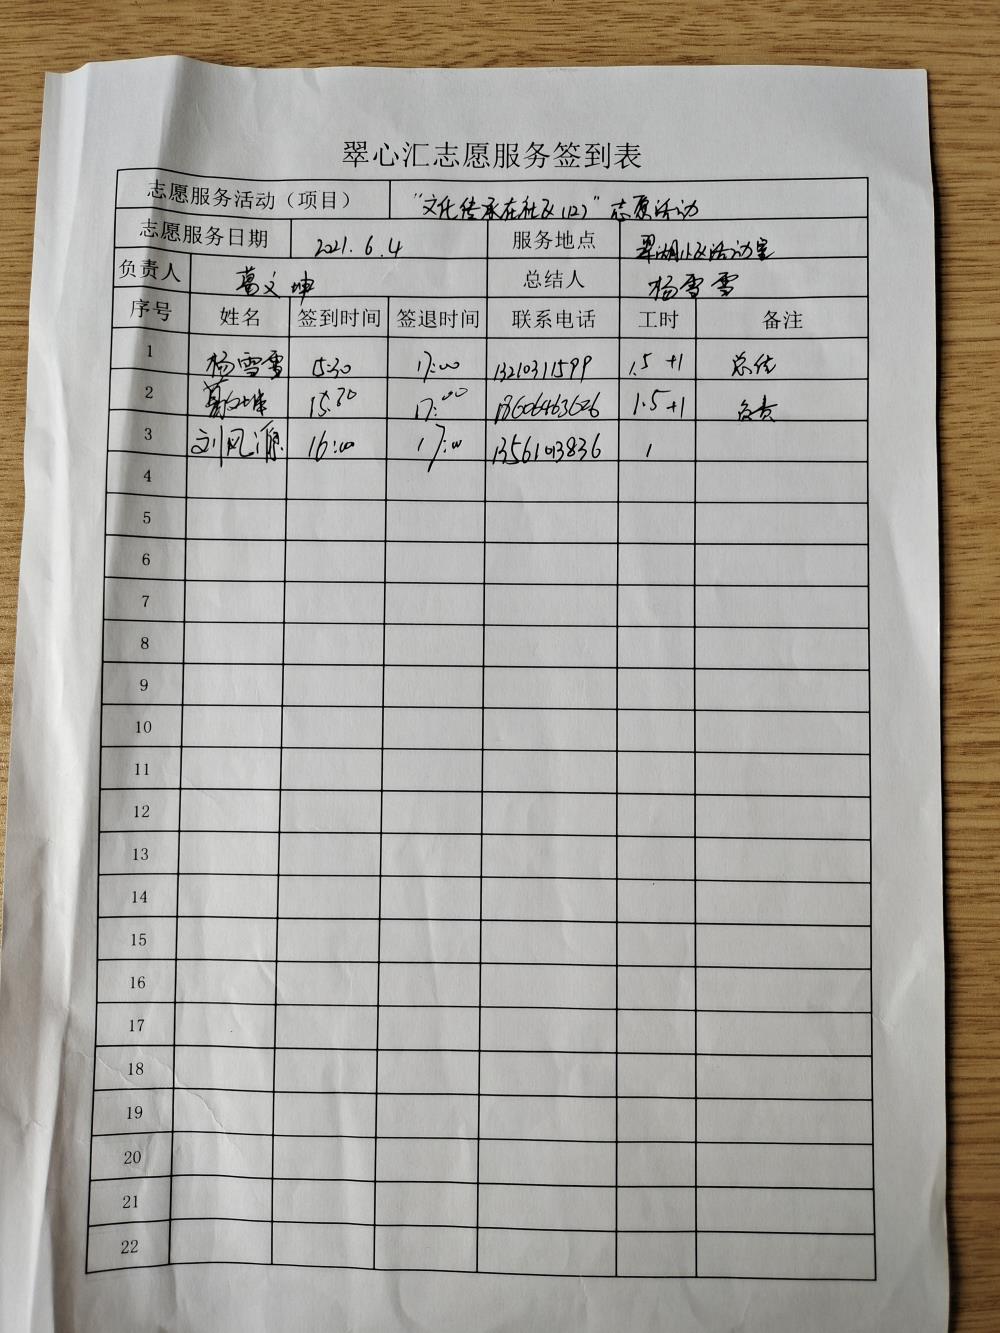 翠心汇志愿服务签到表
志愿服务活动（项目） "文化传承在社区（2）"志愿活动
志愿服务日期 2021.6.4 服务地点 翠湖社区活动室
负责人 葛文坤 总结人 杨雪雪
序号 姓名 签到时间 签退时间 联系电话 工时 备注
1 杨雪雪 15:30 17:00 13210311599 1.5+1 总结
2 葛文坤 15:30 17:00 18606463626 1.5+1 负责
3 刘凤源 16:00 17:00 13561013836 1
4
5
6
7
8
9
10
11
12
13
14
15
16
17
18
19
20
21
22